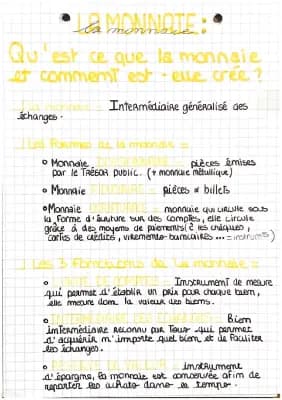 LA MONNAIE :
la monnaie
Qu'est ce que la monnaie
et comment est-elle crée ?
La monnaie = Intermédiaire généralisé des
échanges.
Les formes de la monnaie =
Monnaie DIVISIONNAIRE = pièces émises
par le Trésor public. (+ monnaie métallique)
Monnaie FIDUCIAIRE = pièces + billets
Monnaie SCRIPTURALE = monnaie qui circule sous
la forme d'écriture sur des comptes, elle circule
grâce à des moyens de paiements (= les chèques,
cartes de crédits, virements bancaires... = instrums)
Les 3 fonctions de la monnaie =
UNITÉ DE COMPTES = Instrument de mesure
qui permet d'établir un prix pour chaque bien,
elle mesure donc la valeur des biens.
INTERMÉDIAIRE DES ÉCHANGES = Bien
intermédiaire reconnu par Tous qui permet
d'acquérir n'importe quel bien, et de faciliter
les échanges.
RÉSERVE DE VALEUR = Instrument
d'épargne, la monnaie est conservée afin de
reporter les achats dans le temps.